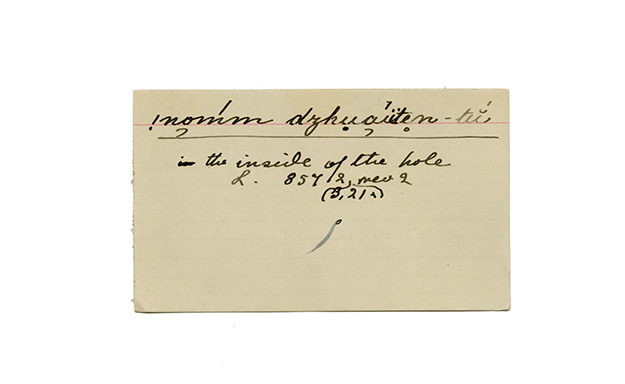 !nomm dzhuaiten-tu
in the inside of the hole
L. 857 2, rev 2
(3, 21)